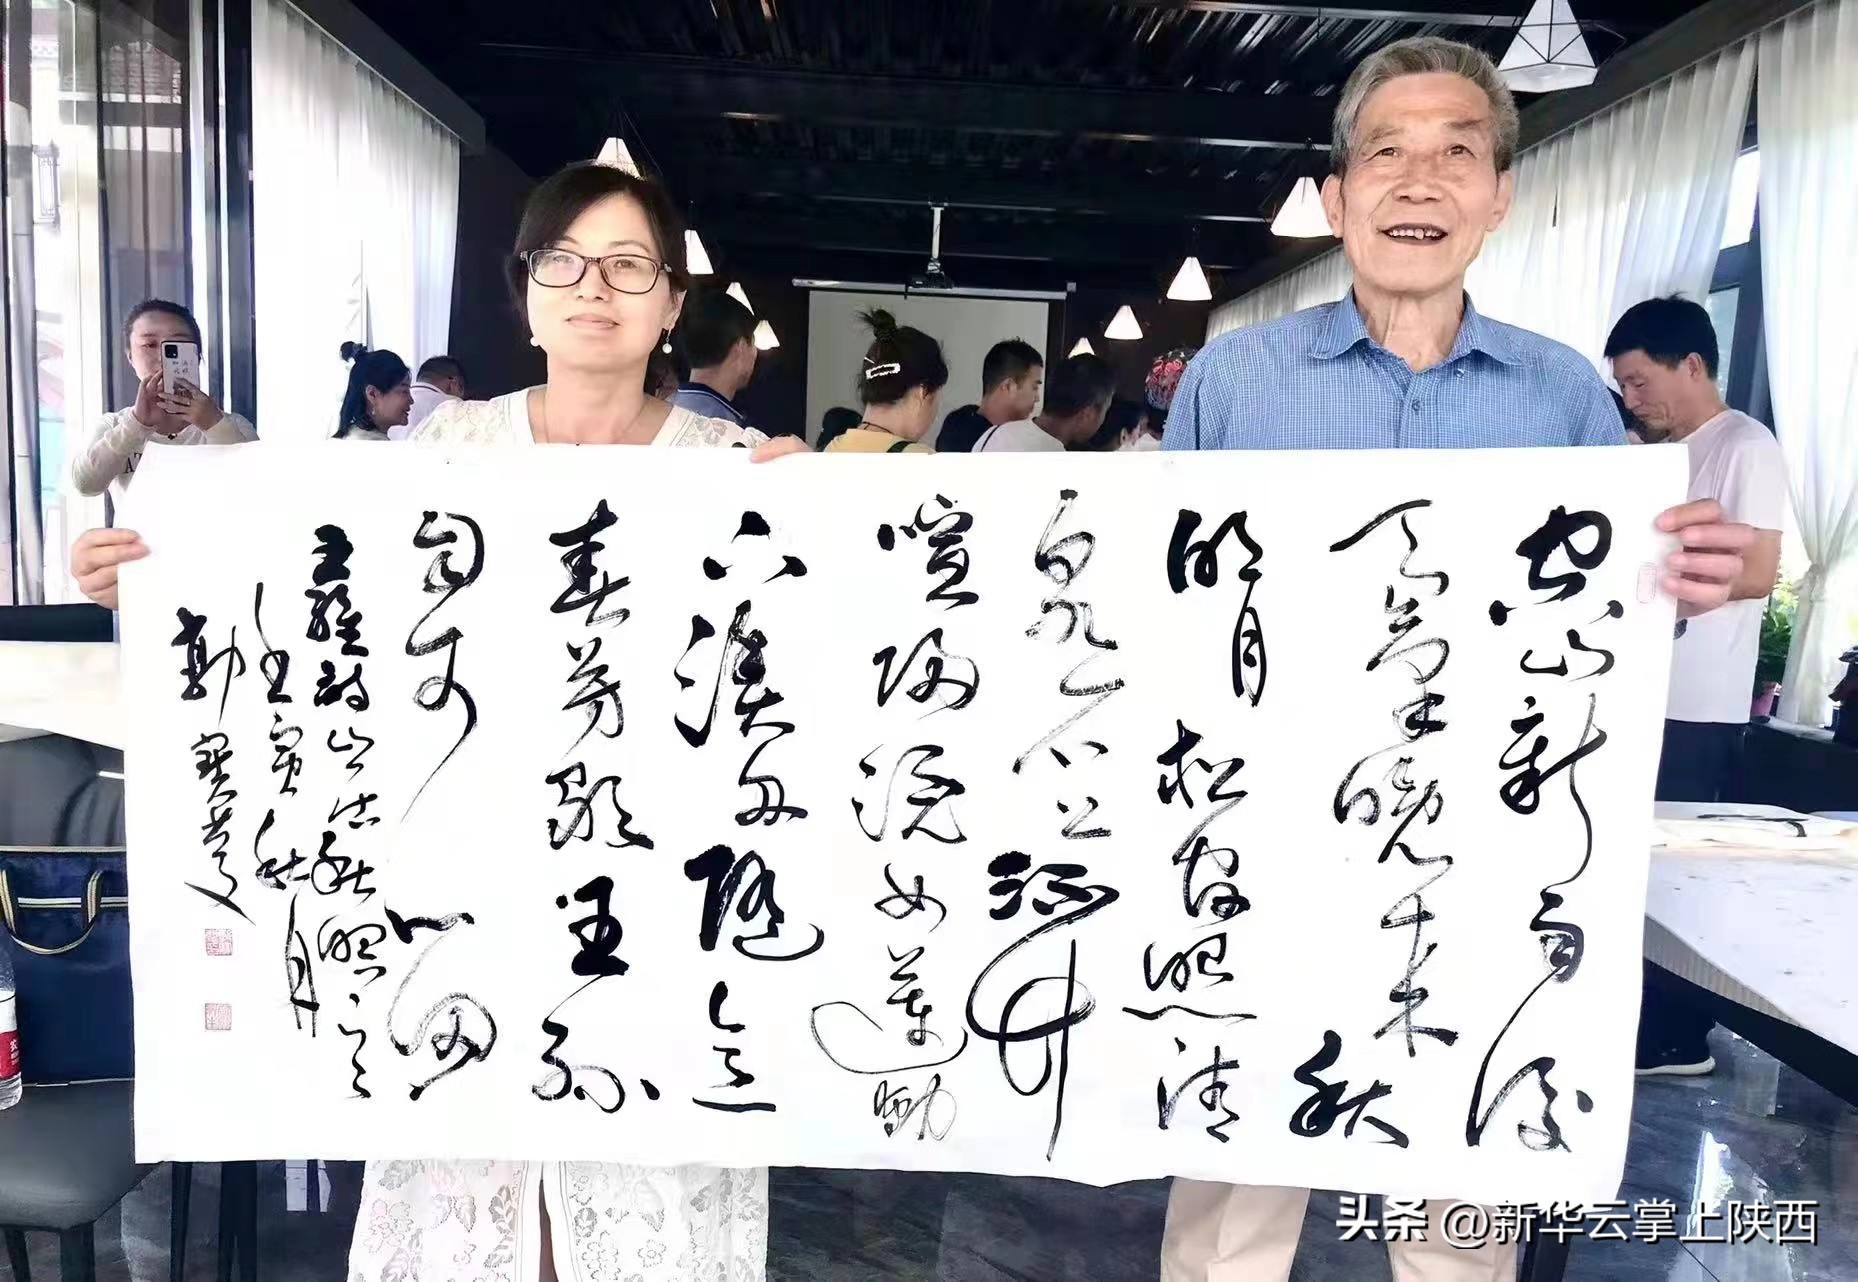 空山新雨後
天氣晚来秋
明月松間照清
泉石上流竹
喧歸浣女蓮動
下漁舟隨意
春芳歇王孫
自可留
王維詩山居秋暝
壬寅秋月
寶
头条 @新华云掌上陕西